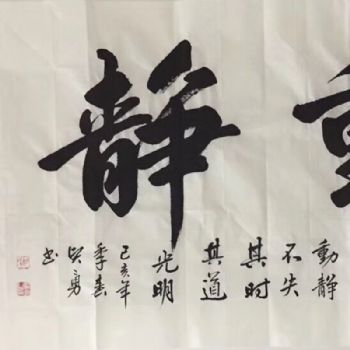 靜
動靜
不失
其时
其道
光明
己亥年
季春
贤勇
书